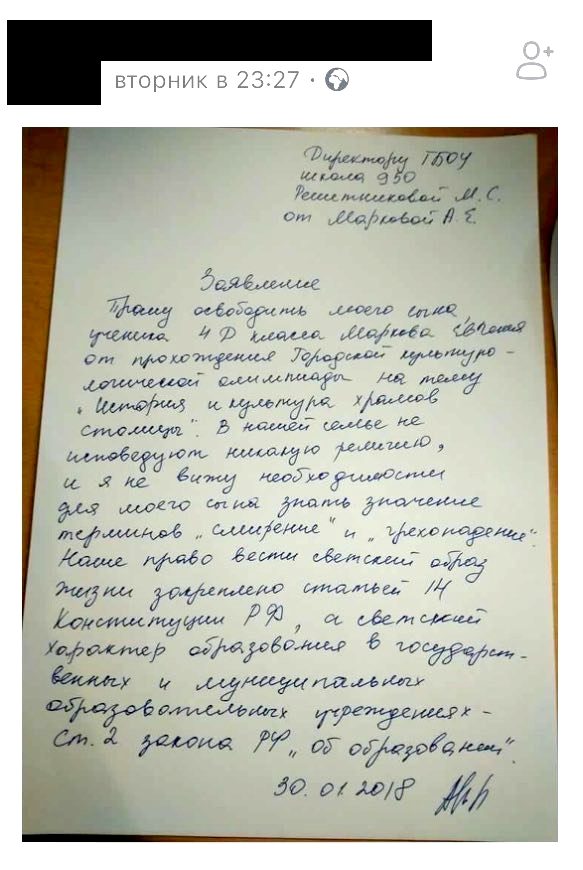 вторник в 23:27 ·
Директору ГБОУ
школа 950
Решетниковой М. С.
от Марковой А. Е.
Заявление
Прошу освободить моего сына,
ученика 4 Д класса Маркова Евгения
от прохождения Городской культуро-
логической олимпиады на тему
„История и культура храмов
столицы". В нашей семье не
исповедуют никакую религию,
и я не вижу необходимости
для моего сына знать значение
терминов „смирение" и „грехопадение".
Наше право вести светский образ
жизни закреплено статьей 14
Конституции РФ, а светский
характер образования в государст-
венных и муниципальных
образовательных учреждениях –
ст. 2 закона РФ „об образовании".
30.01.2018